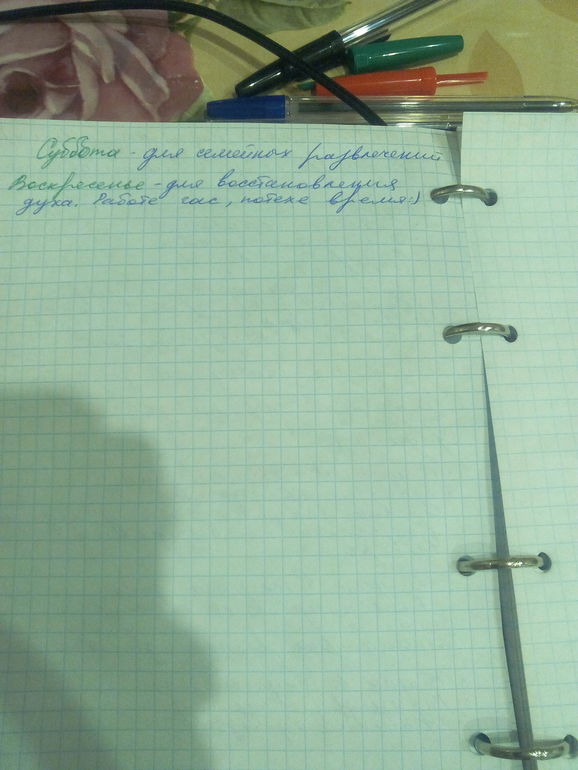 Суббота - для семейных развлечений
Воскресенье - для восстановления
духа. Работе час, потехе время:)